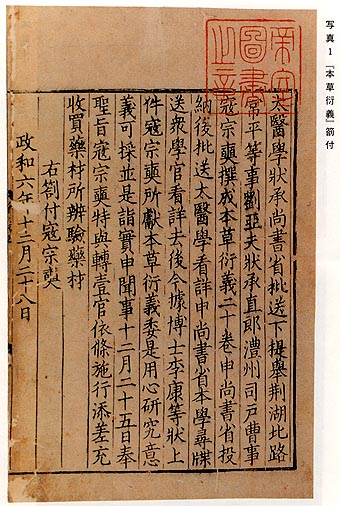 写真1『本草衍義』箚付
帝室
圖書
之章
太醫學狀承尚書省批送下提舉荆湖北路
常平等事劉亞夫狀承直郎澧州司戶曹事
寇宗奭撰成本草衍義二十卷申尚書省投
納後批送太醫學看詳申尚書省本學尋牒
送衆學官看詳去後今據博士李康等狀上
件寇宗奭所獻本草衍義委是用心研究意
義可採並是詣實申聞事十二月二十五日奉
聖旨寇宗奭特與轉壹官依條施行添差充
收買藥材所辨驗藥材
右劄付寇宗奭
政和六年十二月二十八日